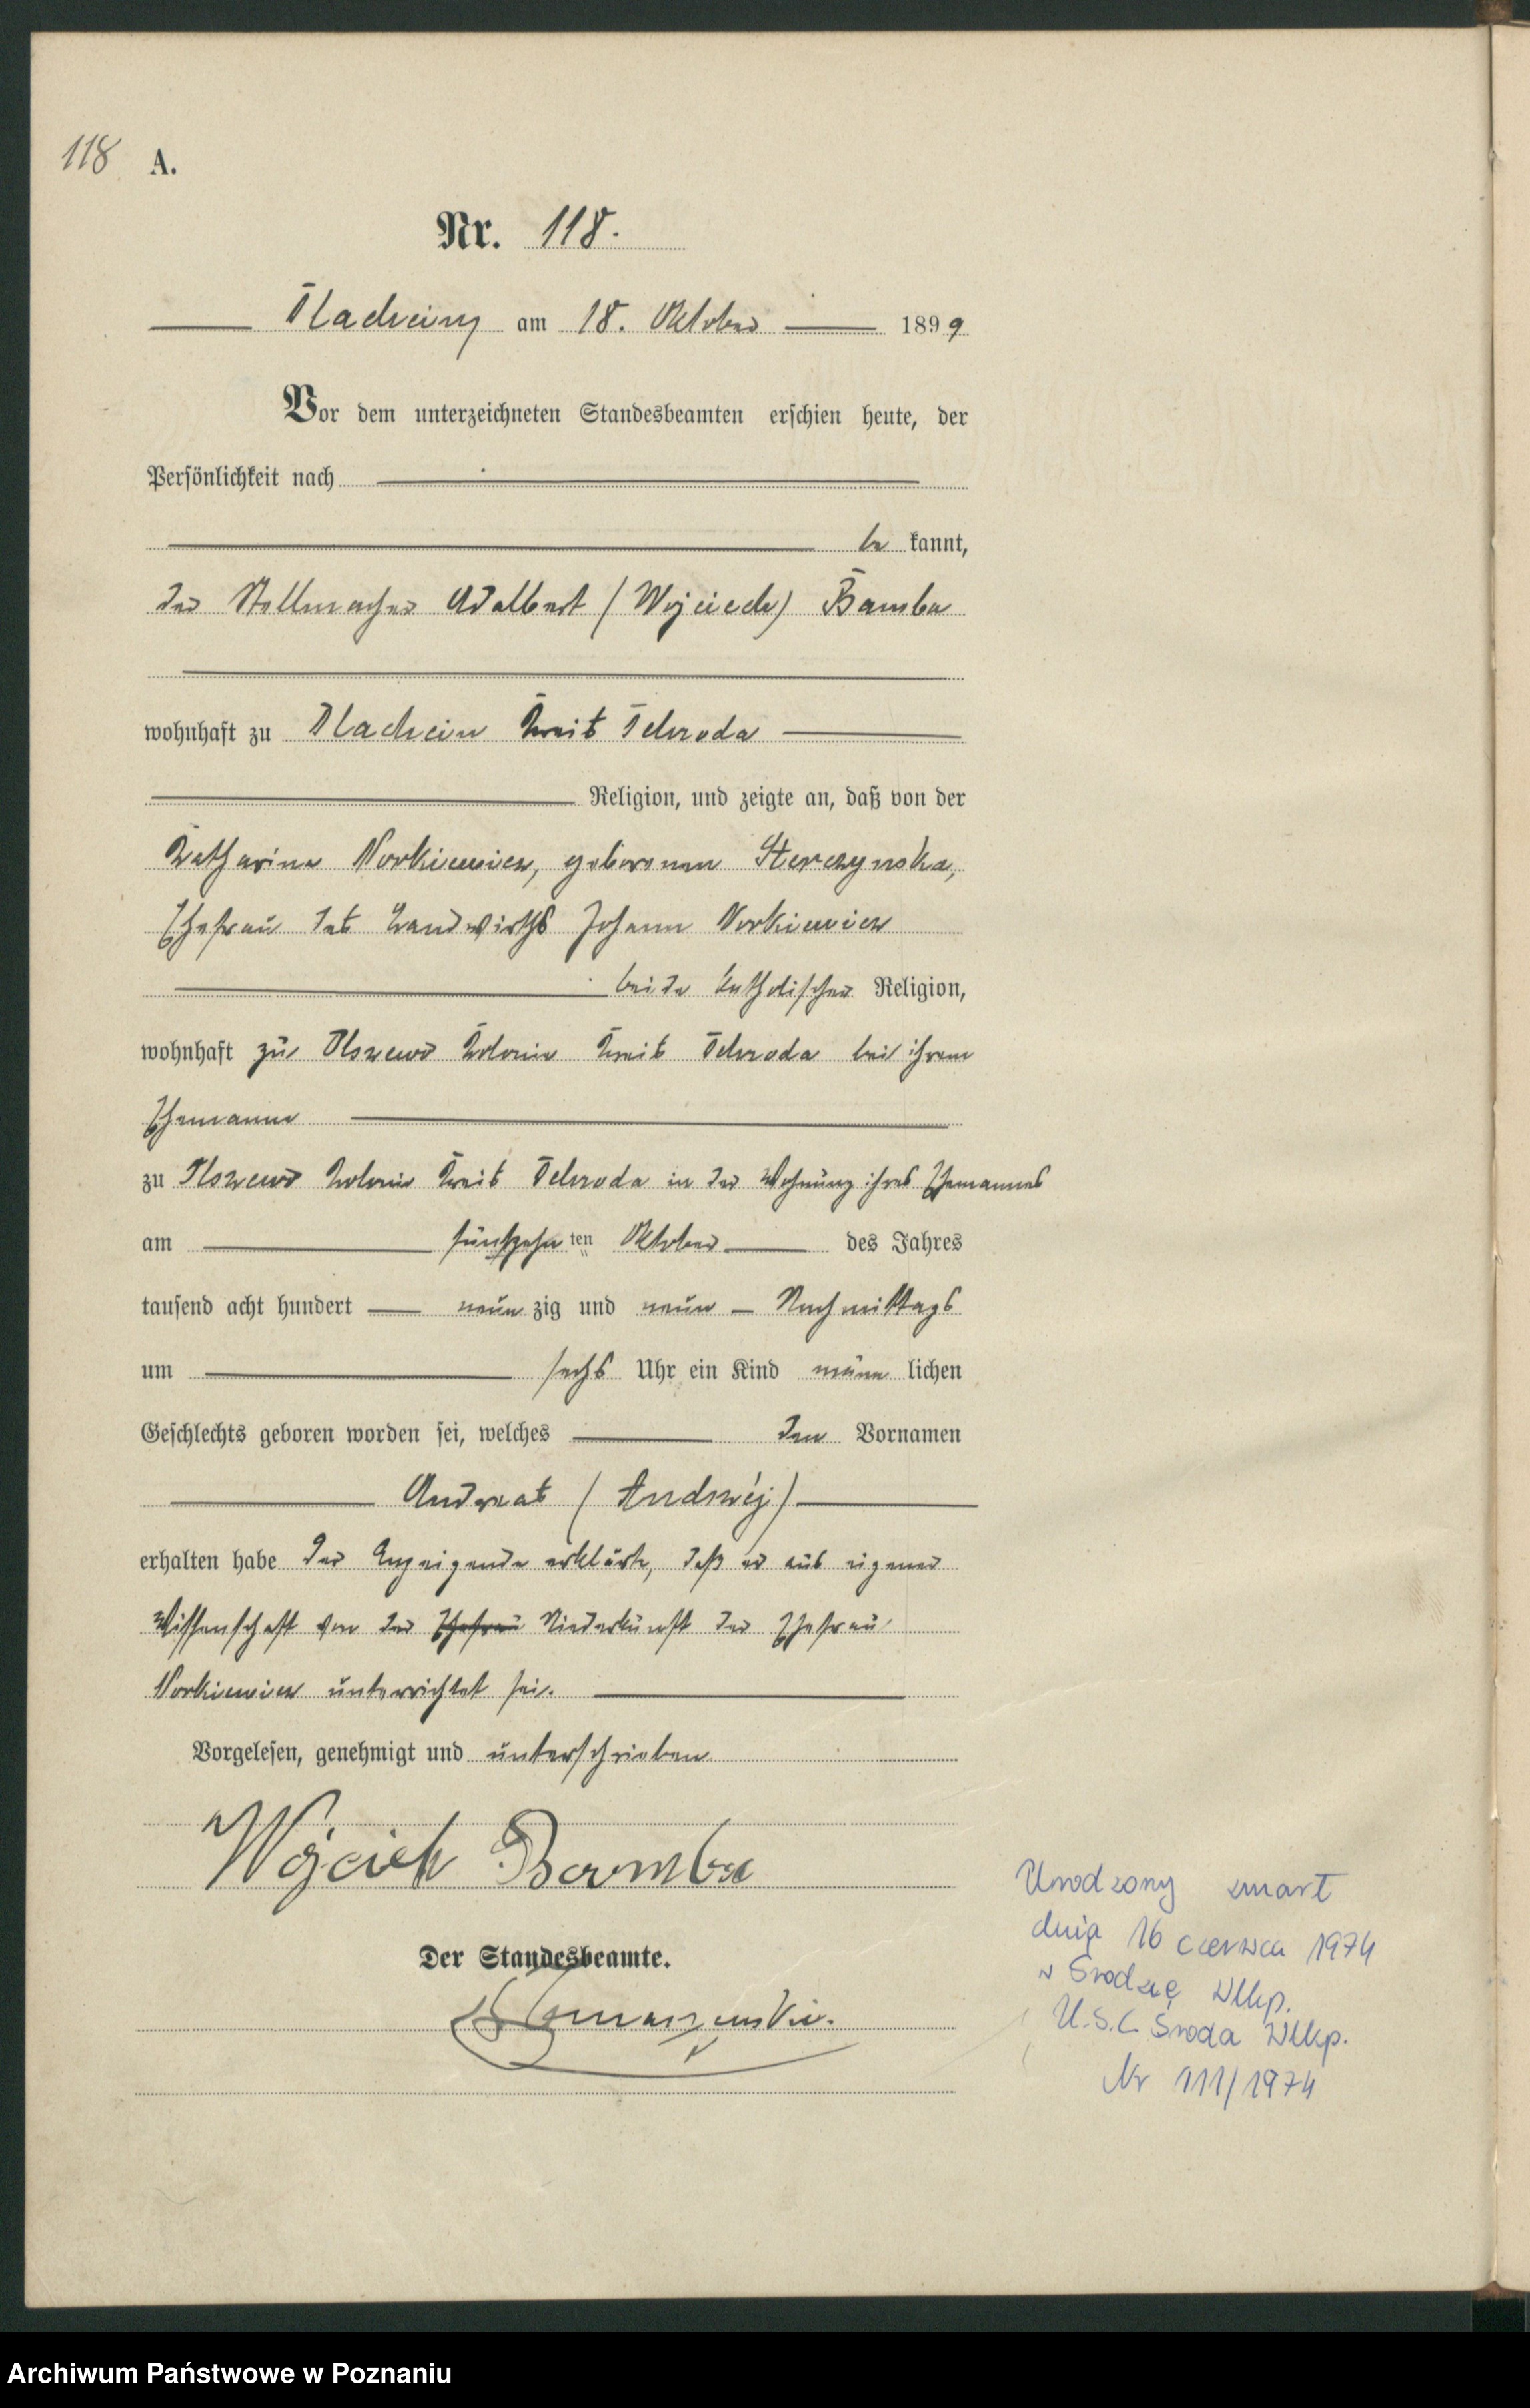 118 A.
Nr. 118.
Plachcin am 18. Oktober 1899
Vor dem unterzeichneten Standesbeamten erschien heute, der
Persönlichkeit nach
be kannt,
der Stellmacher Adalbert (Wojciech) Bamber
wohnhaft zu Kreis Schroda
Religion, und zeigte an, daß von der
Katharina Norkiewicz, geborenen
Ehefrau des Landwirths Johann Norkiewicz
beide katholischer Religion,
wohnhaft zu Kolonie Kreis Schroda bei ihrem
Ehemann
zu Kolonie Kreis Schroda in der Wohnung ihres Ehemannes
am fünfzehn ten Oktober des Jahres
tausend acht hundert neun zig und neun Nachmittags
um sechs Uhr ein Kind männ lichen
Geschlechts geboren worden sei, welches den Vornamen
Andreas (Andrzej)
erhalten habe Der Anzeigende erklärte, daß er aus eigener
Wissenschaft von der Ehefrau Niederkunft der Ehefrau
Norkiewicz unterrichtet sei.
Vorgelesen, genehmigt und unterschrieben
Wojciech
Der Standesbeamte.
Urodzony zmarł
dnia 16 czerwca 1974
w Środzie Wlkp.
U.S.C. Środa Wlkp.
Nr 111/1974
Archiwum Państwowe w Poznaniu